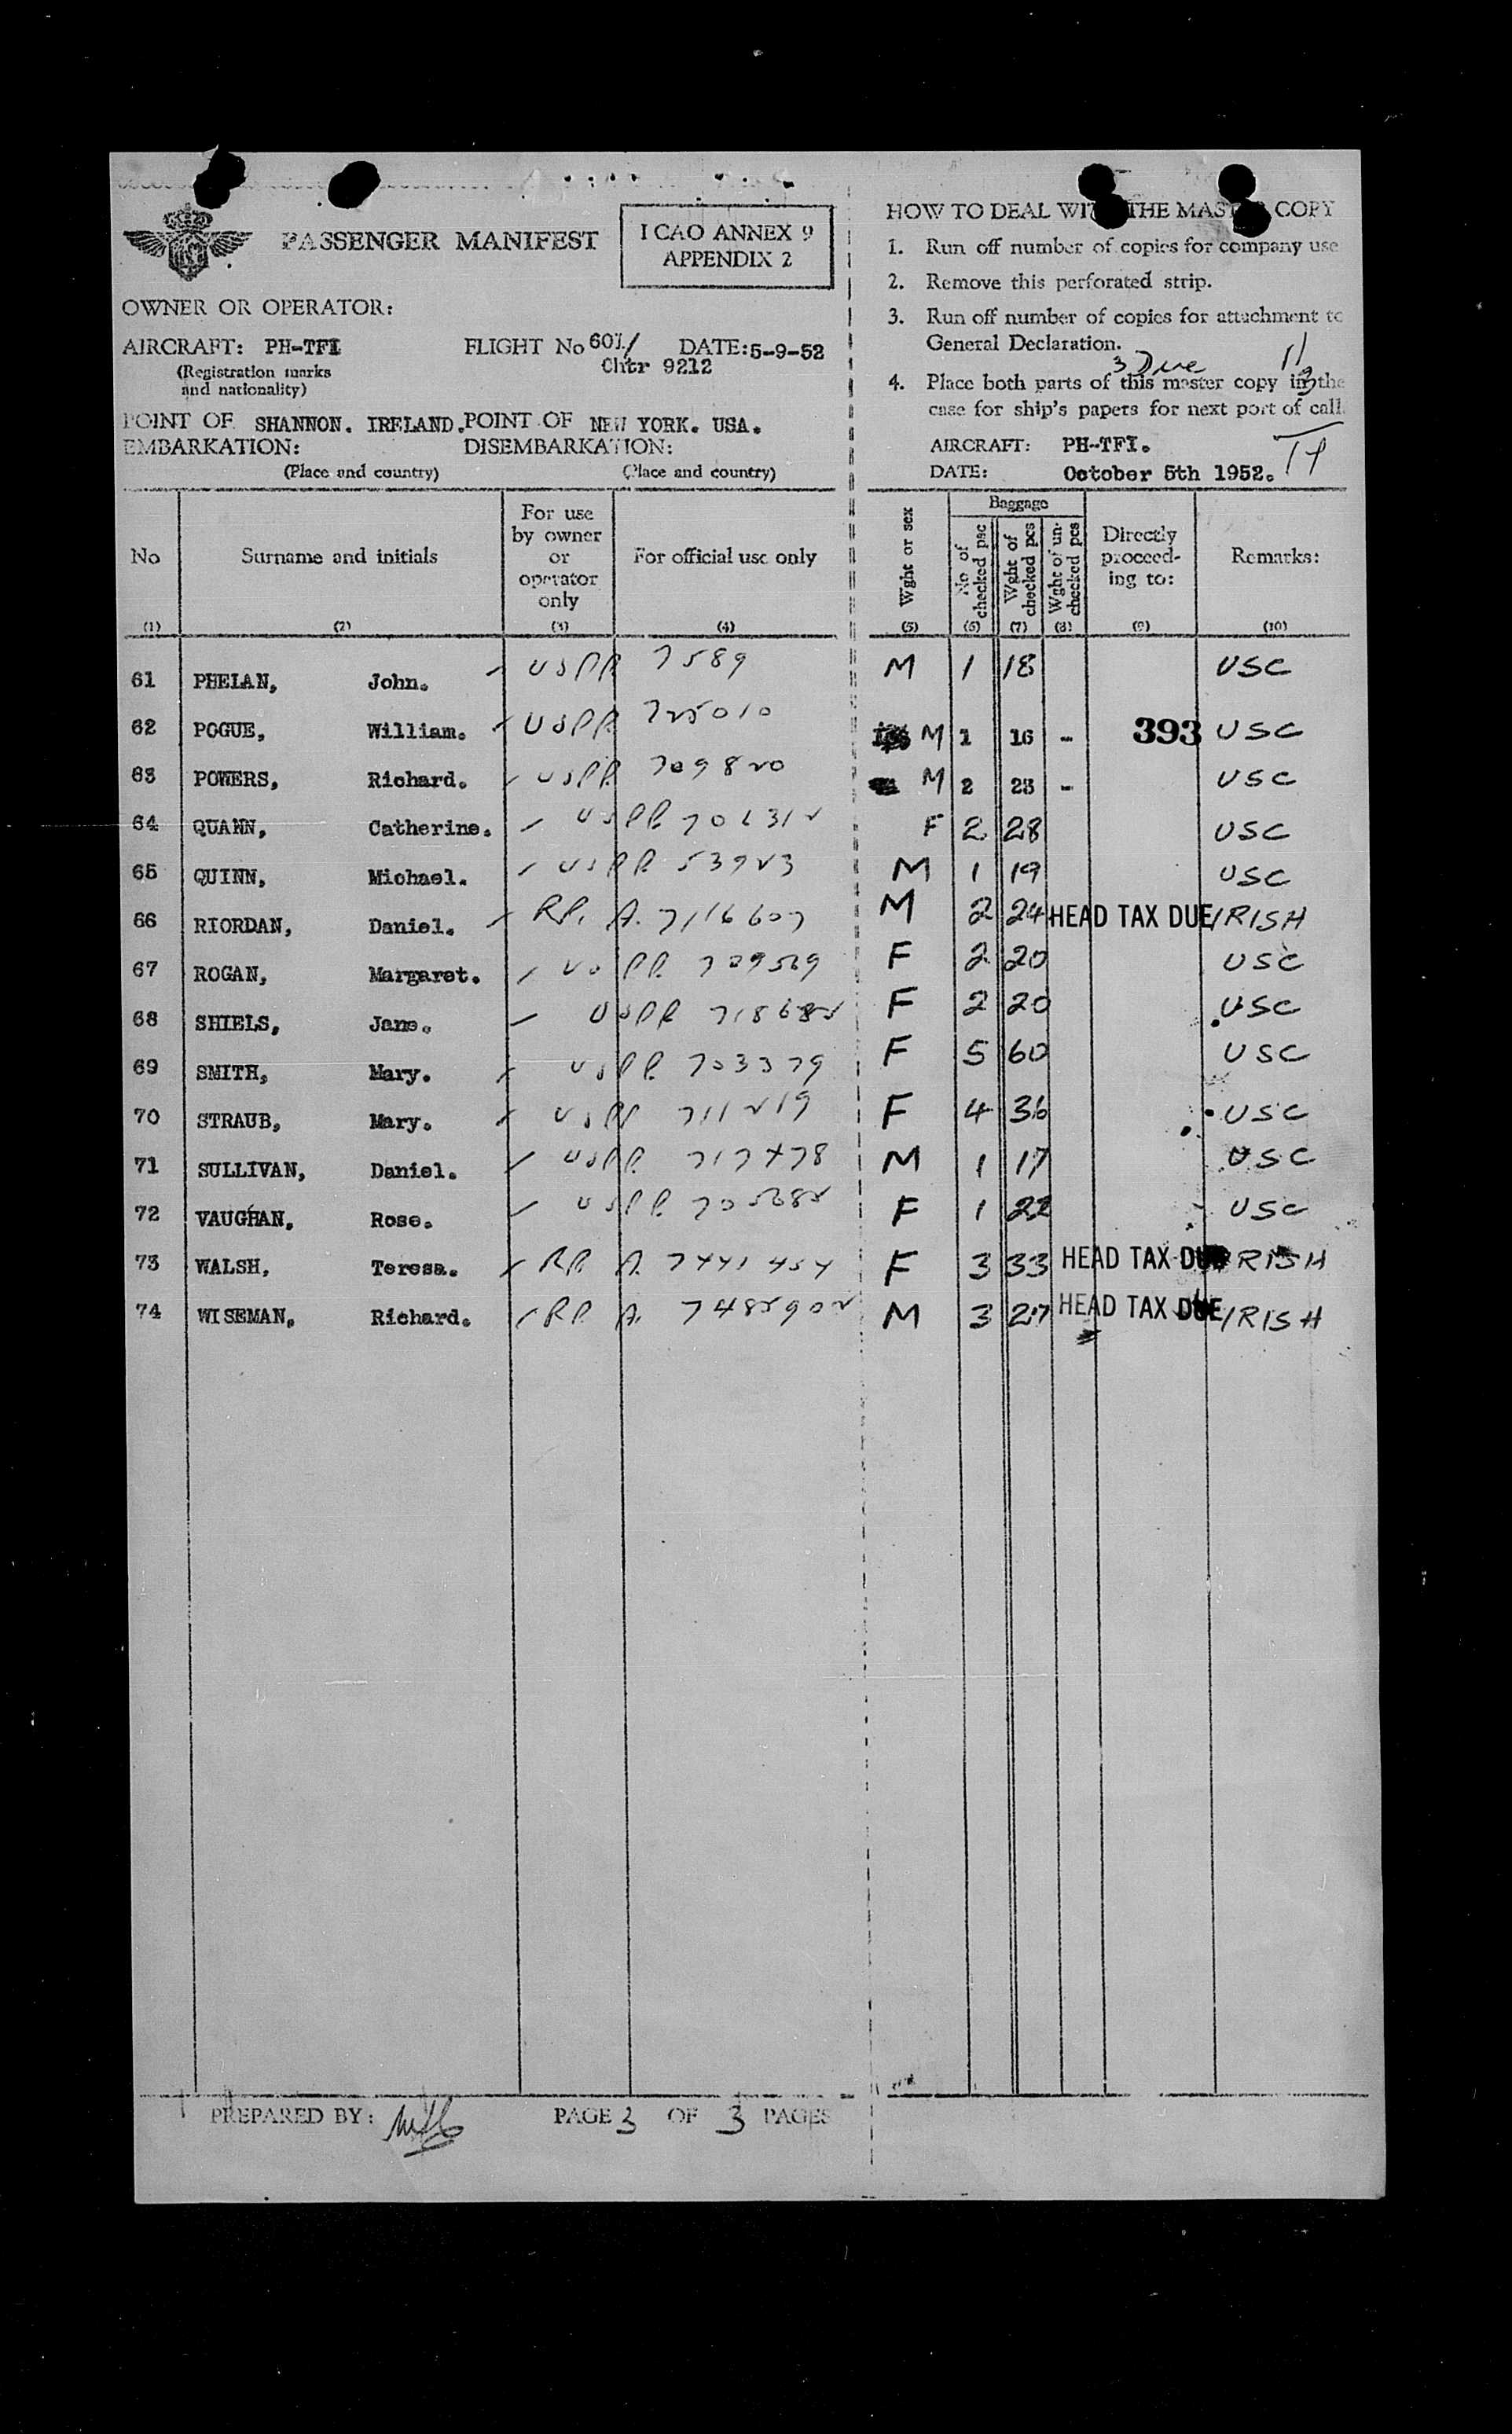 PASSENGER MANIFEST
I CAO ANNEX 9
APPENDIX 2
OWNER OR OPERATOR:
AIRCRAFT: PH-TFI FLIGHT No 601/ DATE: 5-9-52
(Registration marks and nationality) Chtr 9212
POINT OF EMBARKATION: SHANNON. IRELAND. POINT OF DISEMBARKATION: NEW YORK. USA.
(Place and country) (Place and country)
HOW TO DEAL WITH THE MASTER COPY
1. Run off number of copies for company use
2. Remove this perforated strip.
3. Run off number of copies for attachment to
General Declaration.
3 Due
4. Place both parts of this master copy in the
case for ship's papers for next port of call.
AIRCRAFT: PH-TFI.
DATE: October 5th 1952.
No Surname and initials For use by owner or operator only For official use only Wght or sex Baggage No of checked psc Wght of checked pcs Wght of un-checked pcs Directly proceed-ing to: Remarks:
(1) (2) (3) (4) (5) (6) (7) (8) (9) (10)
61 PHELAN, John. USPP. 7589 M 1 18 USC
62 POGUE, William. USPP. 725010 M 1 16 - 393 USC
63 POWERS, Richard. USPP. 709820 M 2 23 - USC
64 QUANN, Catherine. USPP. 706312 F 2 28 USC
65 QUINN, Michael. USPP. 53923 M 1 19 USC
66 RIORDAN, Daniel. RP. A. 7116607 M 2 24 HEAD TAX DUE IRISH
67 ROGAN, Margaret. USPP. 709529 F 2 20 USC
68 SHIELS, Jane. USPP. 718682 F 2 20 USC
69 SMITH, Mary. USPP. 703379 F 5 60 USC
70 STRAUB, Mary. USPP 711219 F 4 36 USC
71 SULLIVAN, Daniel. USPP. 717478 M 1 17 USC
72 VAUGHAN, Rose. USPP. 705682 F 1 22 USC
73 WALSH, Teresa. RP. A. 7441454 F 3 33 HEAD TAX DUE IRISH
74 WISEMAN, Richard. RP. A. 7482902 M 3 27 HEAD TAX DUE IRISH
PREPARED BY: PAGE 3 OF 3 PAGES